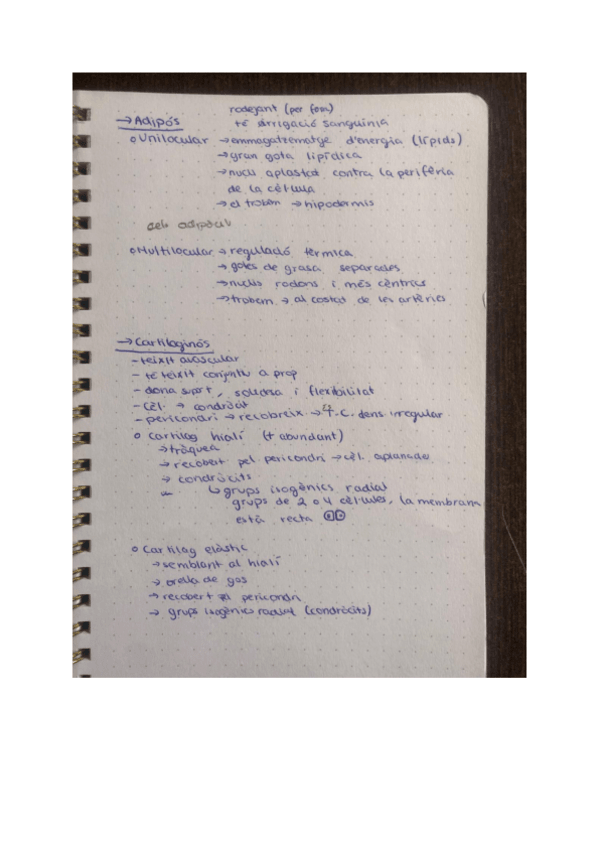 rodejant (per fora)
→ Adipós té irrigació sanguínia
o Unilocular →emmagatzematge d'energia (lípids)
→gran gota lipídica
→nucli aplastat contra la perifèria
de la cèl·lula
→el trobem →hipodermis
cèl adipòcit
o Multilocular → regulació tèrmica
→ gotes de grasa separades
→nuclis rodons i més cèntrics
→trobem → al costat de les artèries
→ Cartilaginós
- teixit avascular
- té teixit conjuntiu a prop
- dona suport, solidesa i flexibilitat
- cèl. → condròcit
- pericondri → recobreix → T.C. dens irregular
o Cartílag hialí (+ abundant)
→tràquea
→ recobert pel pericondri → cèl. aplanades
→ condròcits
↳ grups isogènics radial
grups de 2 o 4 cèl·lules, la membrana
està recta
o Cartílag elàstic
→semblant al hialí
→ orella de gos
→ recobert pericondri
→ grups isogènics radial (condròcits)